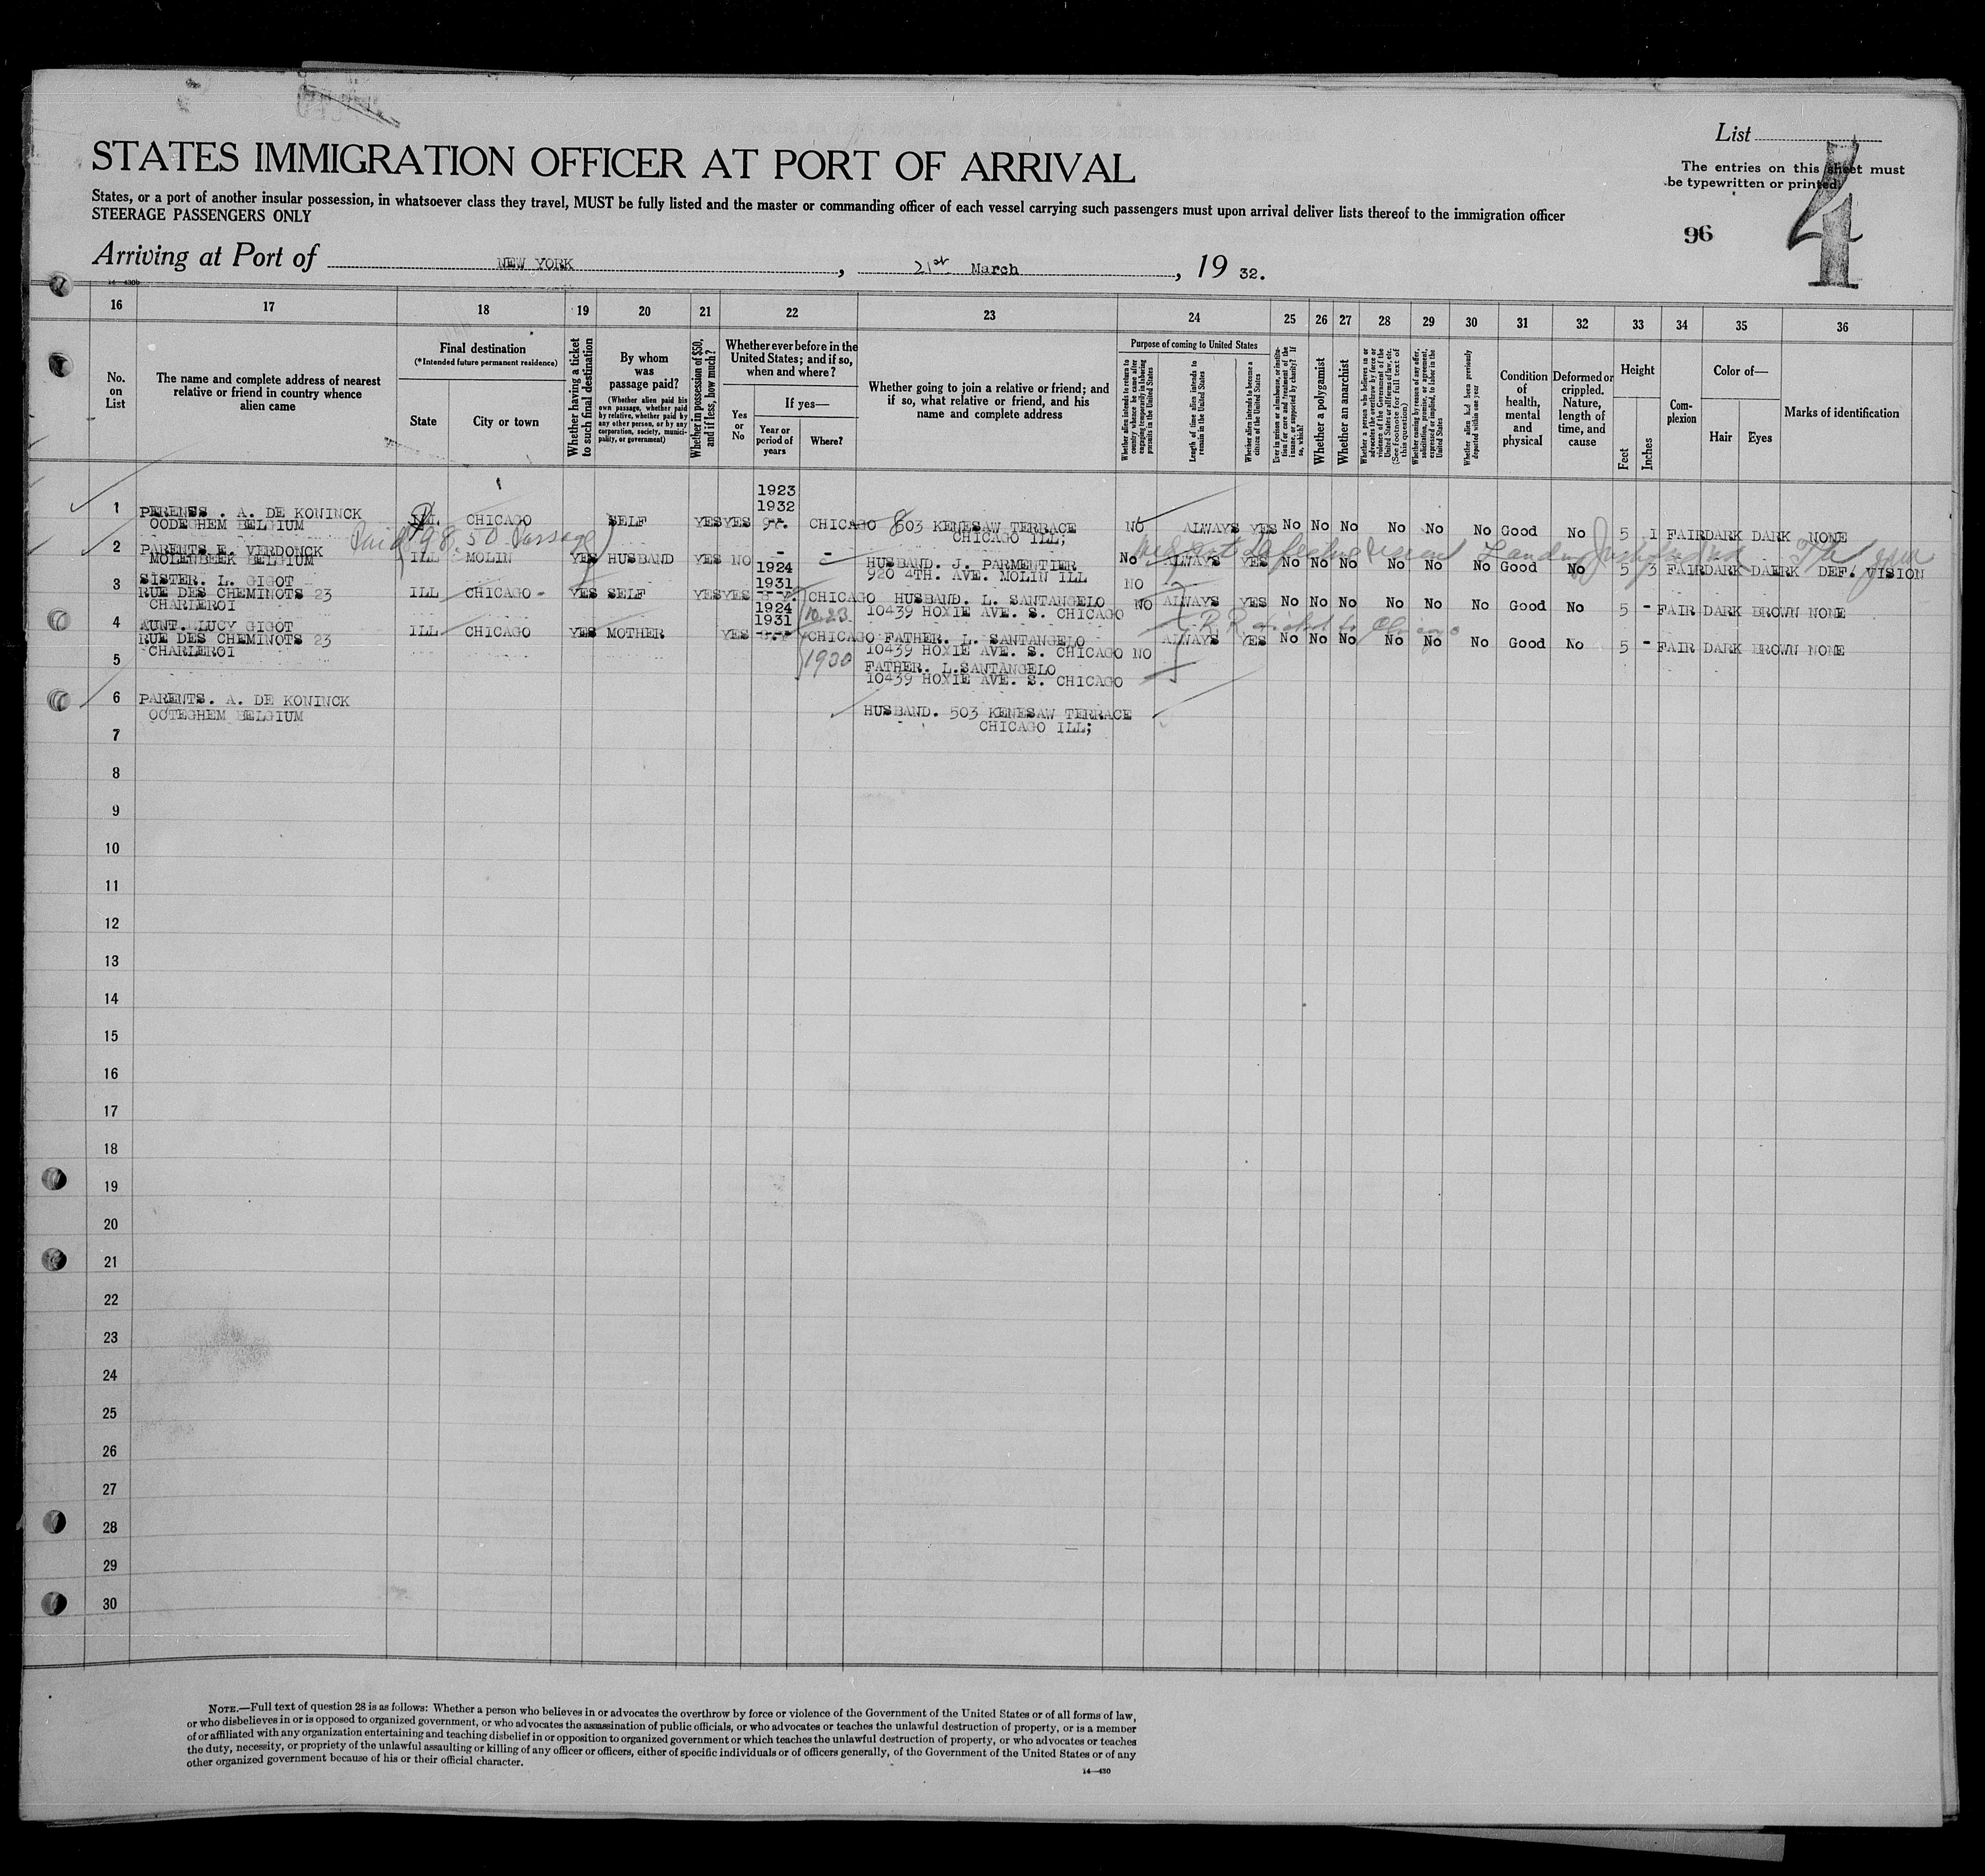 STATES IMMIGRATION OFFICER AT PORT OF ARRIVAL
States, or a port of another insular possession, in whatsoever class they travel, MUST be fully listed and the master or commanding officer of each vessel carrying such passengers must upon arrival deliver lists thereof to the immigration officer
STEERAGE PASSENGERS ONLY
List
The entries on this sheet must
be typewritten or printed.
96
4
Arriving at Port of NEW YORK , 21st March , 19 32.
16 17 18 19 20 21 22 23 24 25 26 27 28 29 30 31 32 33 34 35 36
No. on List
The name and complete address of nearest relative or friend in country whence alien came
Final destination
(*Intended future permanent residence)
State
City or town
Whether having a ticket to such final destination
By whom was passage paid?
(Whether alien paid his own passage, whether paid by relative, whether paid by any other person, or by any corporation, society, municipality, or government)
Whether in possession of $50, and if less, how much?
Whether ever before in the United States; and if so, when and where?
Yes or No
If yes—
Year or period of years
Where?
Whether going to join a relative or friend; and if so, what relative or friend, and his name and complete address
Purpose of coming to United States
Whether alien intends to return to country whence he came after engaging temporarily in laboring pursuits in the United States
Length of time alien intends to remain in the United States
Whether alien intends to become a citizen of the United States
Ever in prison or almshouse, or institution for care and treatment of the insane, or supported by charity? If so, which?
Whether a polygamist
Whether an anarchist
Whether a person who believes in or advocates the overthrow by force or violence of the Government of the United States or all forms of law, etc. (See footnote for full text of this question)
Whether coming by reason of any offer, solicitation, promise, or agreement, expressed or implied, to labor in the United States
Whether alien had been previously deported within one year
Condition of health, mental and physical
Deformed or crippled. Nature, length of time, and cause
Height
Feet
Inches
Complexion
Color of—
Hair
Eyes
Marks of identification
1923
1932
1 PERENSS . A. DE KONINCK
OODEGHEM BELGIUM ILL. CHICAGO SELF YES YES 9 Y. CHICAGO 803 KENESAW TERRACE NO ALWAYS YES No No No No No No Good No 5 1 FAIR DARK DARK NONE
CHICAGO ILL;
Paid 98.50 Passage
2 PARENTS E. VERDONCK
MOLENBEEK BELGIUM ILL MOLIN YES HUSBAND YES NO - - HUSBAND. J. PARMENTIER No ALWAYS YES No No No No No No Good No 5 3 FAIR DARK DAERK DEF. VISION
920 4TH. AVE. MOLIN ILL
1924
1931
3 SISTER. L. GIGOT
RUE DES CHEMINOTS 23 ILL CHICAGO - YES SELF YES YES CHICAGO HUSBAND. L. SANTANGELO NO ALWAYS YES No No No No No No Good No 5 - FAIR DARK BROWN NONE
CHARLEROI 10439 HOXIE AVE. S. CHICAGO
10.23
1930
1924
1931
4 AUNT. LUCY GIGOT
RUE DES CHEMINOTS 23 ILL CHICAGO YES MOTHER YES CHICAGO FATHER. L. SANTANGELO NO ALWAYS YES No No No No No No Good No 5 - FAIR DARK BROWN NONE
CHARLEROI 10439 HOXIE AVE. S. CHICAGO NO
5 FATHER. L.SANTANGELO
10439 HOXIE AVE. S. CHICAGO
6 PARENTS. A. DE KONINCK
OOTEGHEM BELGIUM HUSBAND. 503 KENESAW TERRACE
CHICAGO ILL;
7
8
9
10
11
12
13
14
15
16
17
18
19
20
21
22
23
24
25
26
27
28
29
30
NOTE.—Full text of question 28 is as follows: Whether a person who believes in or advocates the overthrow by force or violence of the Government of the United States or of all forms of law,
or who disbelieves in or is opposed to organized government, or who advocates the assassination of public officials, or who advocates or teaches the unlawful destruction of property, or is a member
of or affiliated with any organization entertaining and teaching disbelief in or opposition to organized government or which teaches the unlawful destruction of property, or who advocates or teaches
the duty, necessity, or propriety of the unlawful assaulting or killing of any officer or officers, either of specific individuals or of officers generally, of the Government of the United States or of any
other organized government because of his or their official character.
14—430